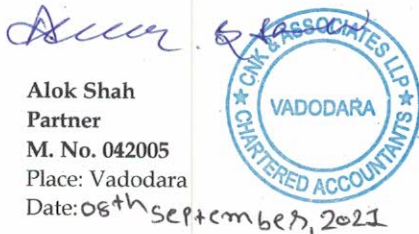 Alok Shah
Partner
M. No. 042005
Place: Vadodara
Date: 08th September, 2021
CNK & ASSOCIATES LLP
VADODARA
CHARTERED ACCOUNTANTS